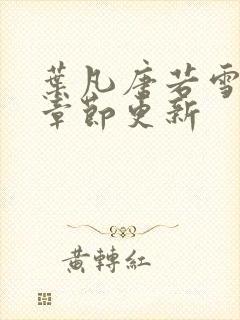 葉凡唐若雪
章節更新
黃轉紅